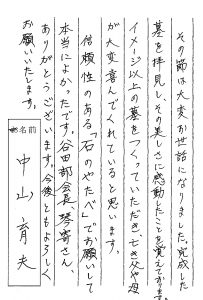 その節は大変お世話になりました。完成した
墓を拝見し、その美しさに感動したことを覚えてます。
イメージ以上の墓をつくっていただき、亡き父や母
が大変喜んでくれていると思います。
信頼性のある「石のやたべ」でお願いして
本当によかったです。谷田部会長、琴寄さん
ありがとうございます。今後ともよろしく
お願いいたします。
お名前
中山育夫